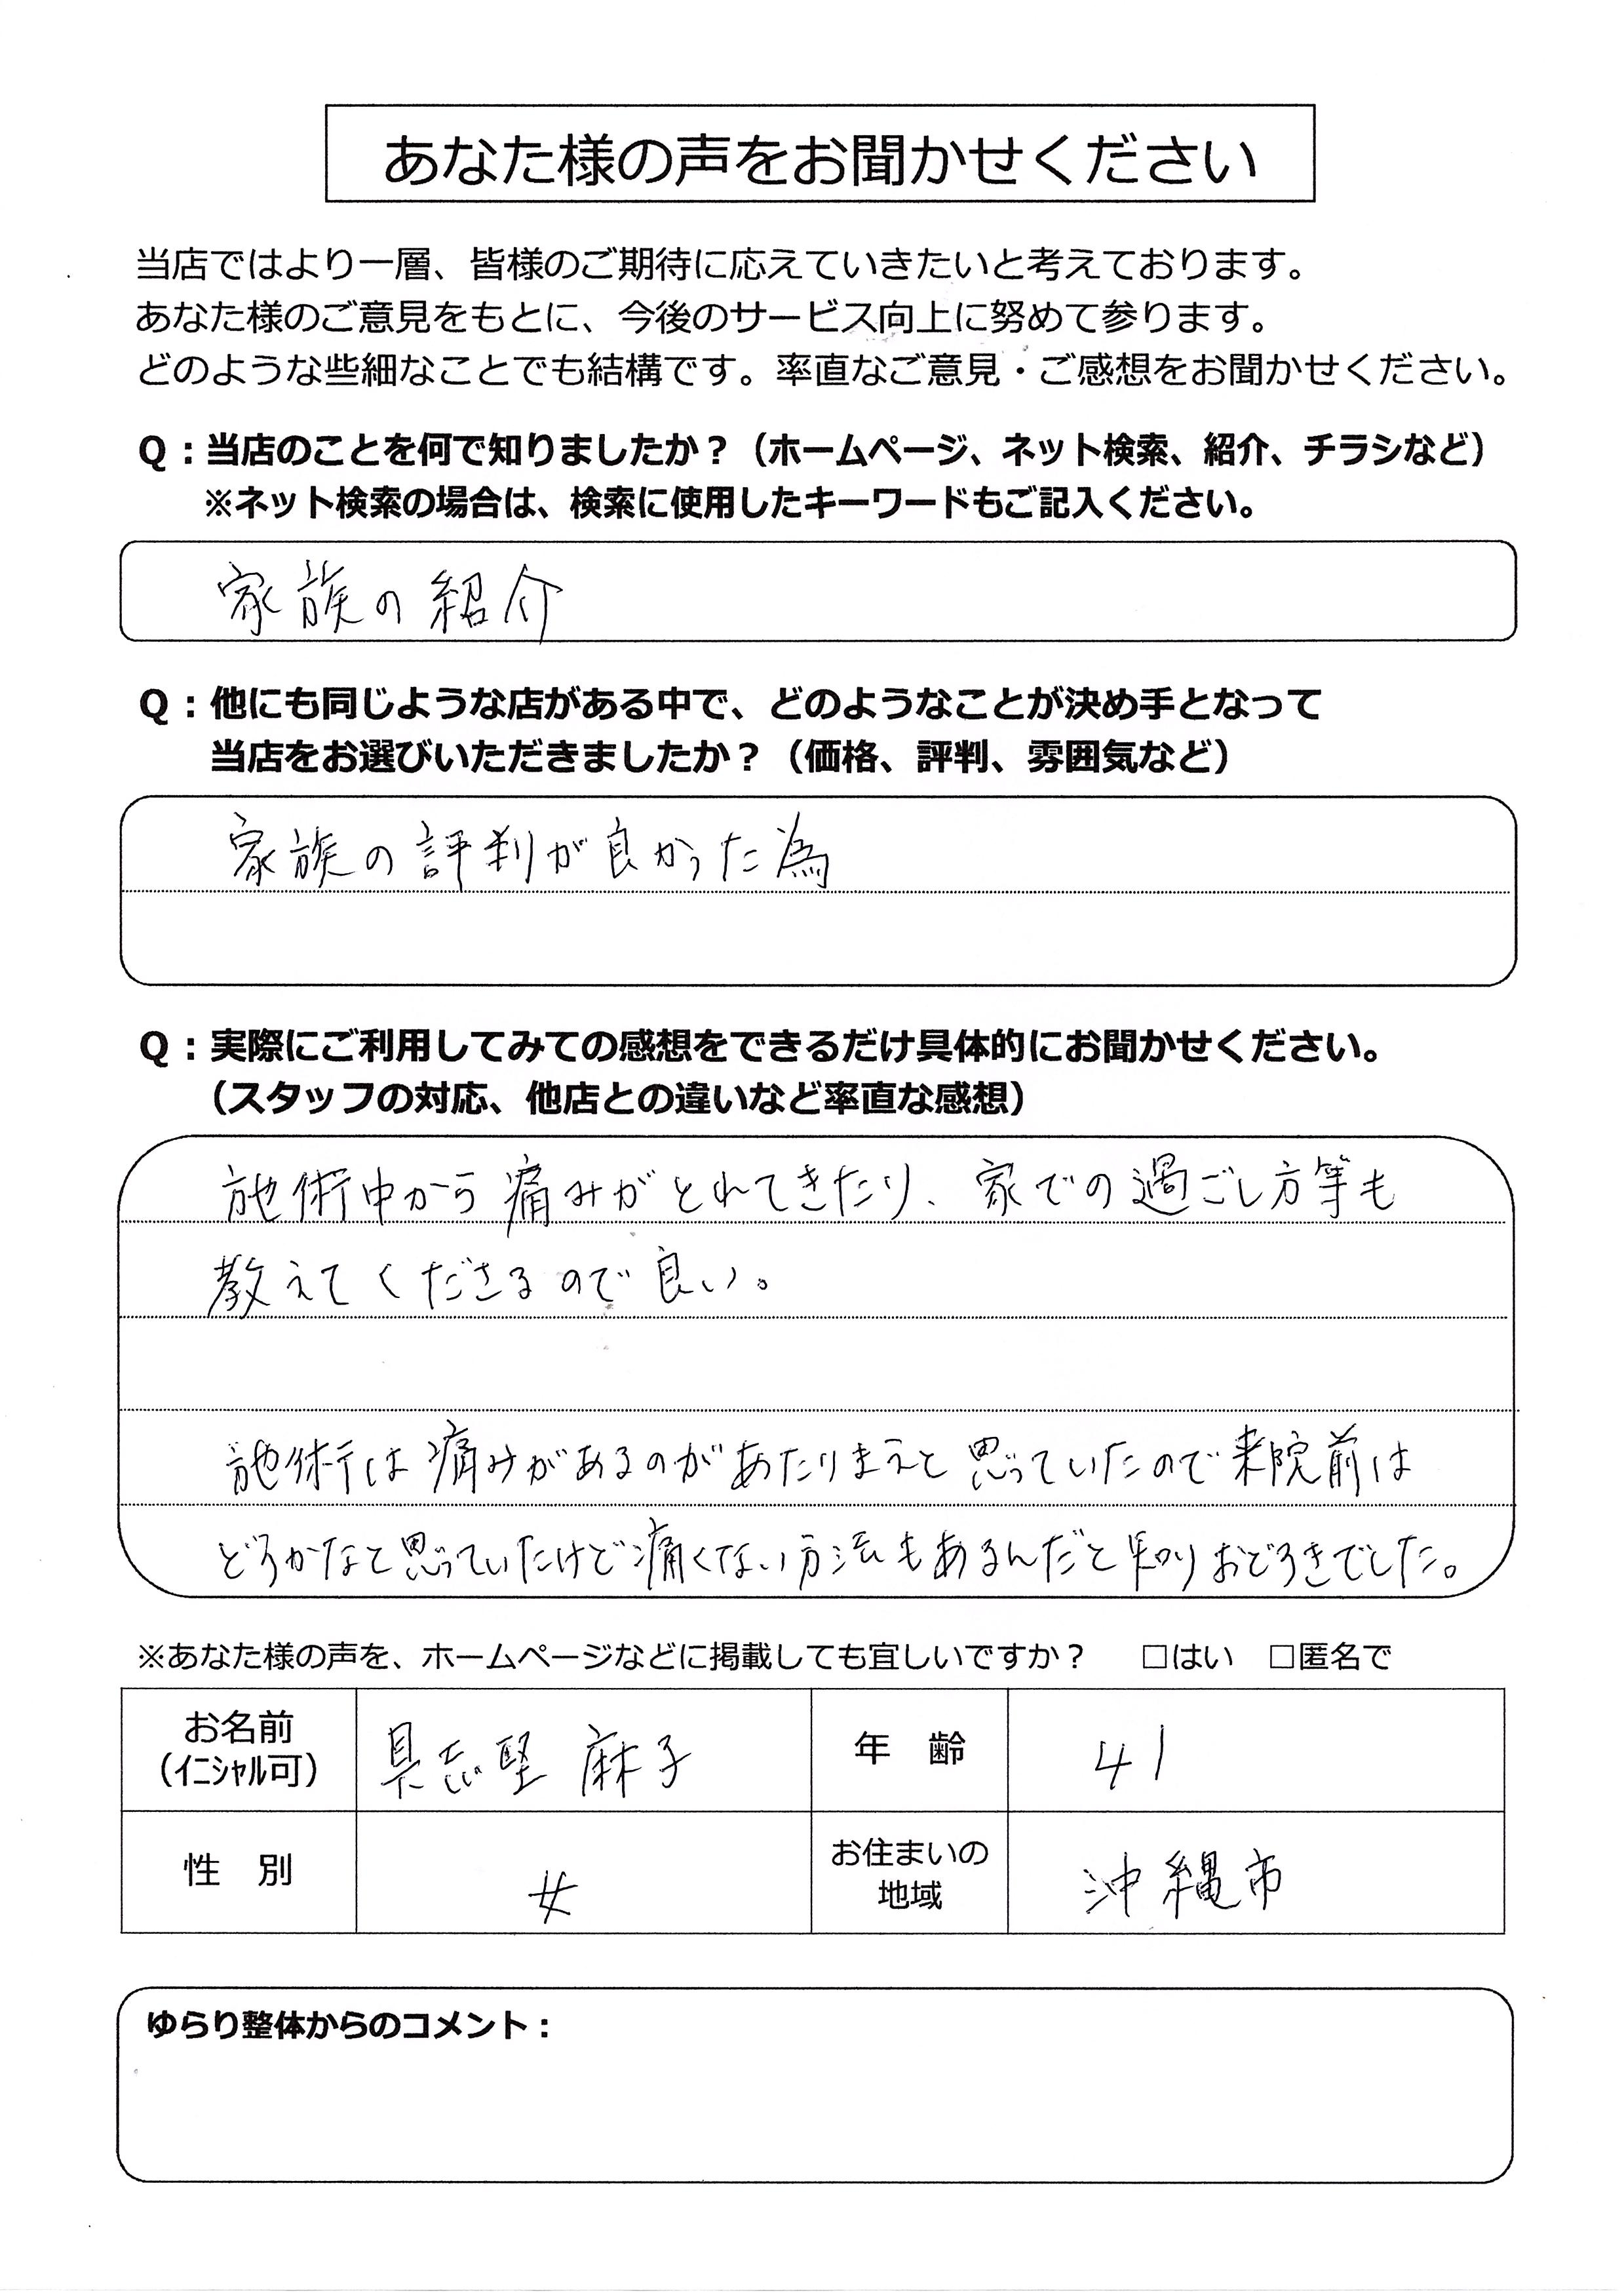 あなた様の声をお聞かせください
当店ではより一層、皆様のご期待に応えていきたいと考えております。
あなた様のご意見をもとに、今後のサービス向上に努めて参ります。
どのような些細なことでも結構です。率直なご意見・ご感想をお聞かせください。
Q：当店のことを何で知りましたか？（ホームページ、ネット検索、紹介、チラシなど）
※ネット検索の場合は、検索に使用したキーワードもご記入ください。
家族の紹介
Q：他にも同じような店がある中で、どのようなことが決め手となって
当店をお選びいただきましたか？（価格、評判、雰囲気など）
家族の評判が良かった為
Q：実際にご利用してみての感想をできるだけ具体的にお聞かせください。
（スタッフの対応、他店との違いなど率直な感想）
施術中から痛みがとれてきたり、家での過ごし方等も
教えてくださるので良い。
施術は痛みがあるのがあたりまえと思っていたので来院前は
どうかなと思っていたけど痛くない方法もあるんだと知りおどろきでした。
※あなた様の声を、ホームページなどに掲載しても宜しいですか？ □はい □匿名で
お名前 具志堅 麻子 年 齢 41
（ｲﾆｼｬﾙ可）
性 別 女 お住まいの 沖縄市
地域
ゆらり整体からのコメント：